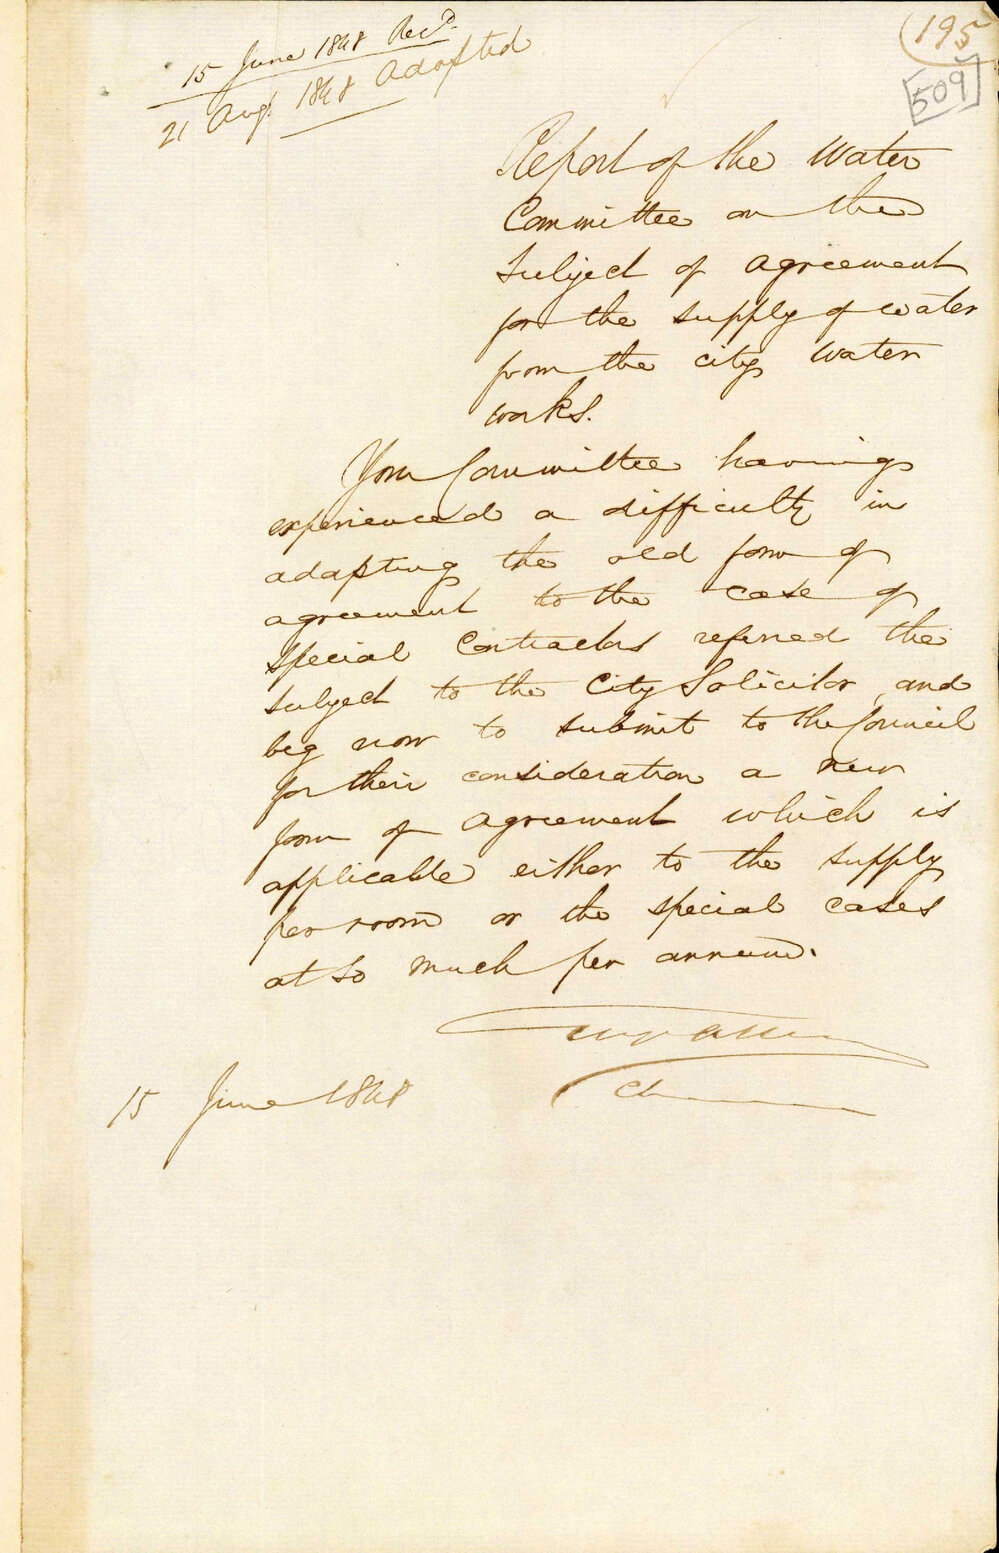 15 June 1848 Recd.
21 Augt. 1848 Adopted
195
509
Report of the Water
Committee on the
Subject of Agreement
for the supply of water
from the city water
works.
Your Committee having
experienced a difficulty in
adapting the old form of
agreement to the case of
special Contractors referred the
subject to the City Solicitor, and
beg now to submit to the Council
for their consideration a new
form of Agreement which is
applicable either to the supply
per room or the special cases
at so much per annum.
Chm
15 June 1848